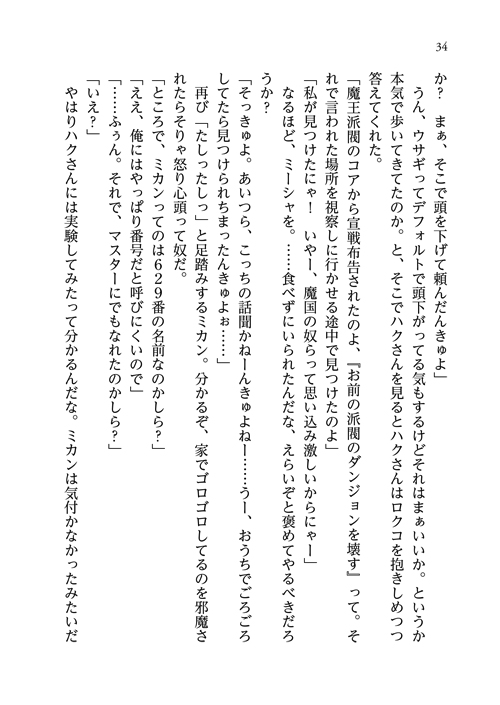 34
か? まぁ、そこで頭を下げて頼んだんきゅよ」
うん、ウサギってデフォルトで頭下がってる気もするけどそれはまぁいいか。というか
本気で歩いてきてたのか。と、そこでハクさんを見るとハクさんはロクコを抱きしめつつ
答えてくれた。
「魔王派閥のコアから宣戦布告されたのよ、『お前の派閥のダンジョンを壊す』って。そ
れで言われた場所を視察しに行かせる途中で見つけたのよ」
「私が見つけたにゃ! いやー、魔国の奴らって思い込み激しいからにゃー」
なるほど、ミーシャを。……食べずにいられたんだな、えらいぞと褒めてやるべきだろ
うか?
「そっきゅよ。あいつら、こっちの話聞かねーんきゅよねー……うー、おうちでごろごろ
してたら見つけられちまったんきゅよぉ……」
再び「たしったしっ」と足踏みするミカン。分かるぞ、家でゴロゴロしてるのを邪魔さ
れたらそりゃ怒り心頭って奴だ。
「ところで、ミカンってのは629番の名前なのかしら?」
「ええ、俺にはやっぱり番号だと呼びにくいので」
「……ふぅん。それで、マスターにでもなれたのかしら?」
「いえ?」
やはりハクさんには実験してみたって分かるんだな。ミカンは気付かなかったみたいだ